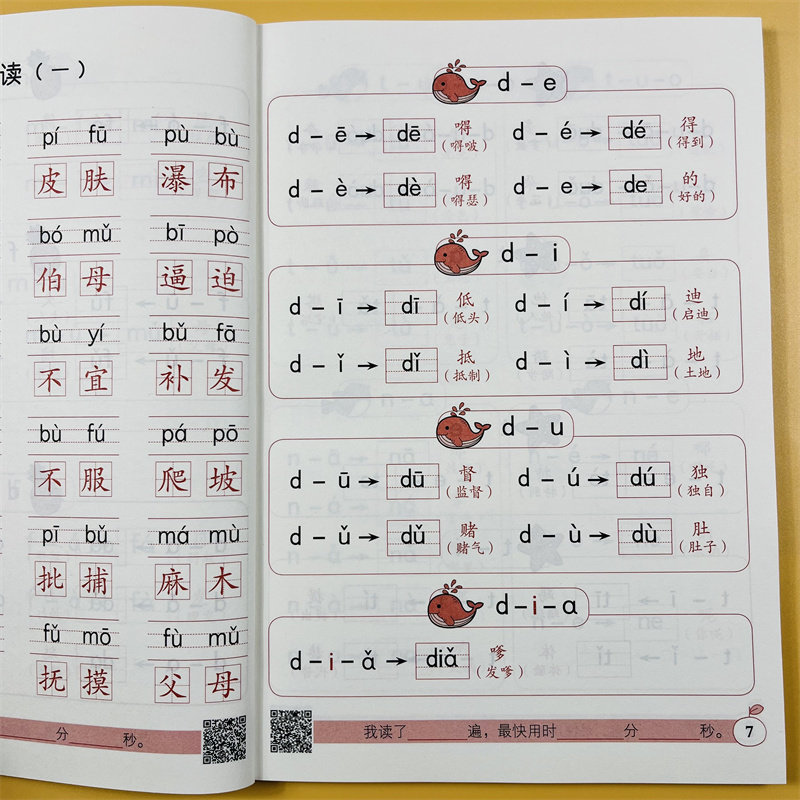 读（一）
pí fū pù bù
皮肤 瀑布
bó mǔ bī pò
伯母 逼迫
bù yí bǔ fā
不宜 补发
bù fú pá pō
不服 爬坡
pī bǔ má mù
批捕 麻木
fǔ mō fù mǔ
抚摸 父母
分 秒。
d – e
d – ē → dē 嘚（嘚啵） d – é → dé 得（得到）
d – è → dè 嘚（嘚瑟） d – e → de 的（好的）
d – i
d – ī → dī 低（低头） d – í → dí 迪（启迪）
d – ǐ → dǐ 抵（抵制） d – ì → dì 地（土地）
d – u
d – ū → dū 督（监督） d – ú → dú 独（独自）
d – ǔ → dǔ 赌（赌气） d – ù → dù 肚（肚子）
d – i – a
d – i – ǎ → diǎ 嗲（发嗲）
我读了 遍，最快用时 分 秒。 7